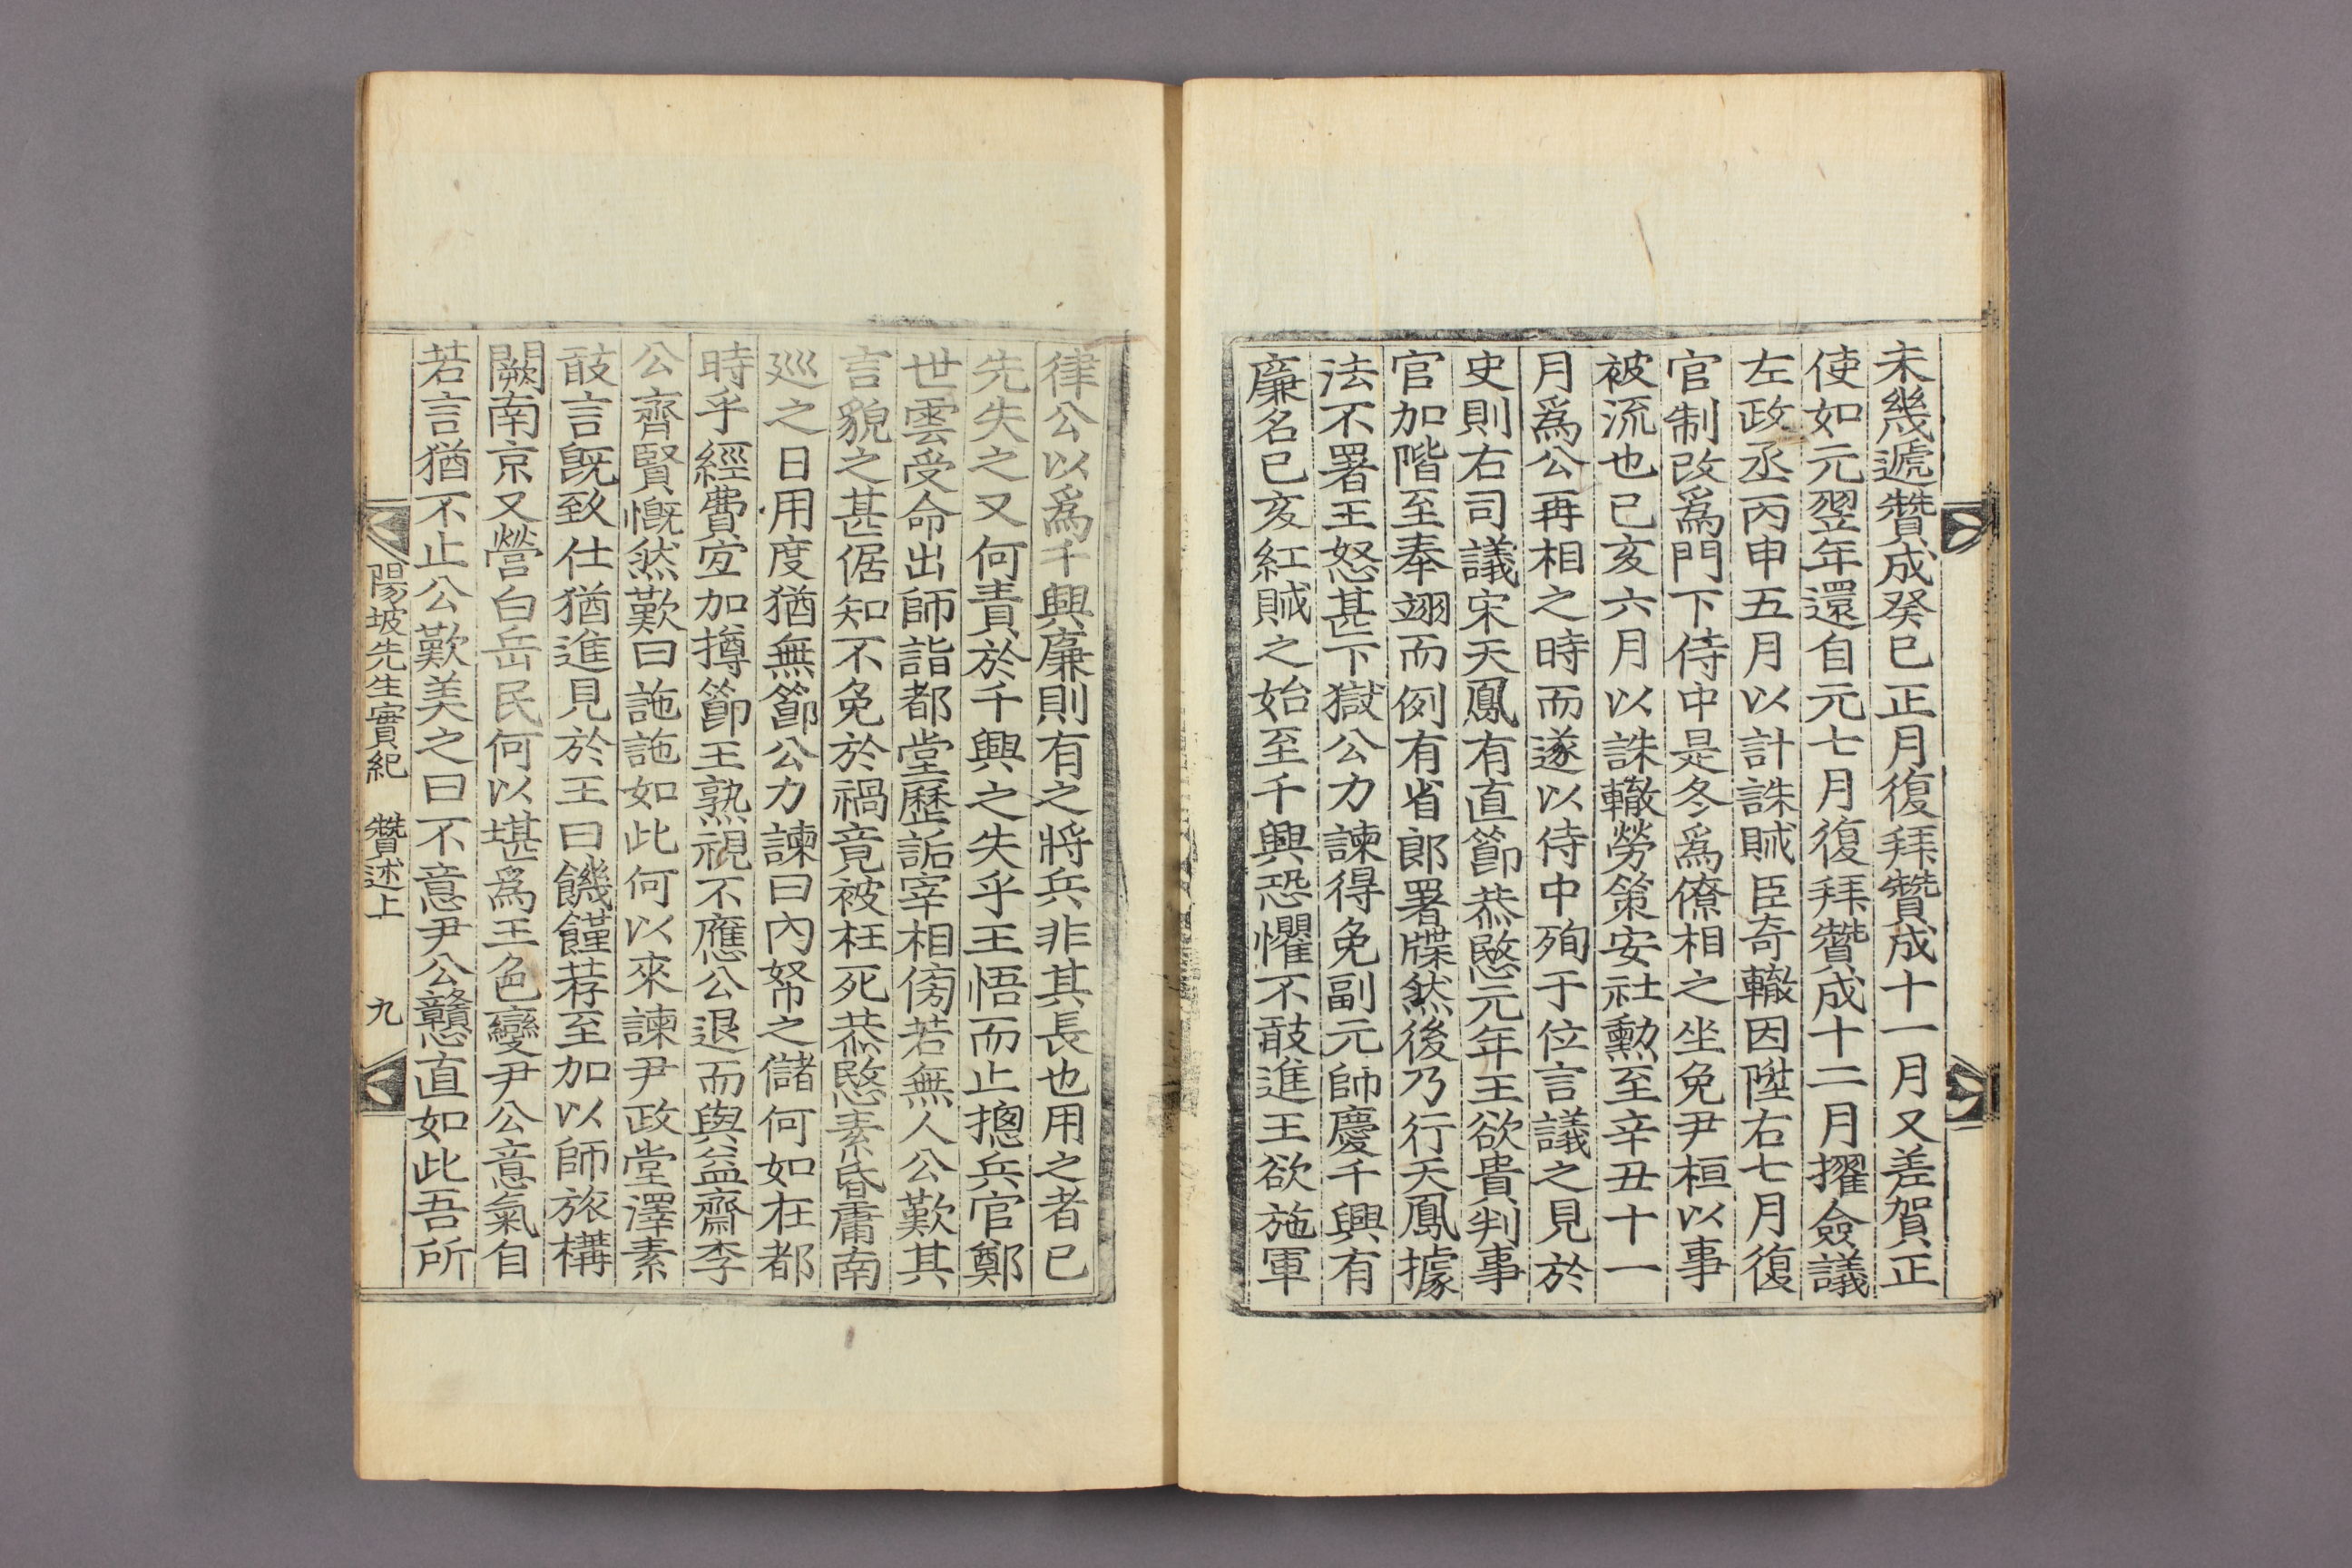 未幾遞贊成癸巳正月復拜贊成十一月又差賀正
使如元翌年還自元七月復拜贊成十二月擢僉議
左政丞丙申五月以計誅賊臣奇轍因陞右七月復
官制改爲門下侍中是冬爲僚相之坐免尹桓以事
被流也已亥六月以誅轍勞策安社勳至辛丑十一
月爲公再相之時而遂以侍中殉于位言議之見於
史則右司議宋天鳳有直節恭愍元年王欲貴判事
官加階至奉翊而例有省郎署牒然後乃行天鳳據
法不署王怒甚下獄公力諫得免副元帥慶千興有
廉名已亥紅賊之始至千興恐懼不敢進王欲施軍
律公以爲千興廉則有之將兵非其長也用之者已
先失之又何責於千興之失乎王悟而止摠兵官鄭
世雲受命出師詣都堂歷詬宰相傍若無人公歎其
言貌之甚倨知不免於禍竟被枉死恭愍素昏庸南
巡之日用度猶無節公力諫曰內帑之儲何如在都
時乎經費宜加撙節王熟視不應公退而與益齋李
公齊賢慨然歎曰訑訑如此何以來諫尹政堂澤素
敢言旣致仕猶進見於王曰饑饉荐至加以師旅構
闕南京又營白岳民何以堪爲王色變尹公意氣自
若言猶不止公歎美之曰不意尹公戇直如此吾所
陽坡先生實紀 贊述上 九